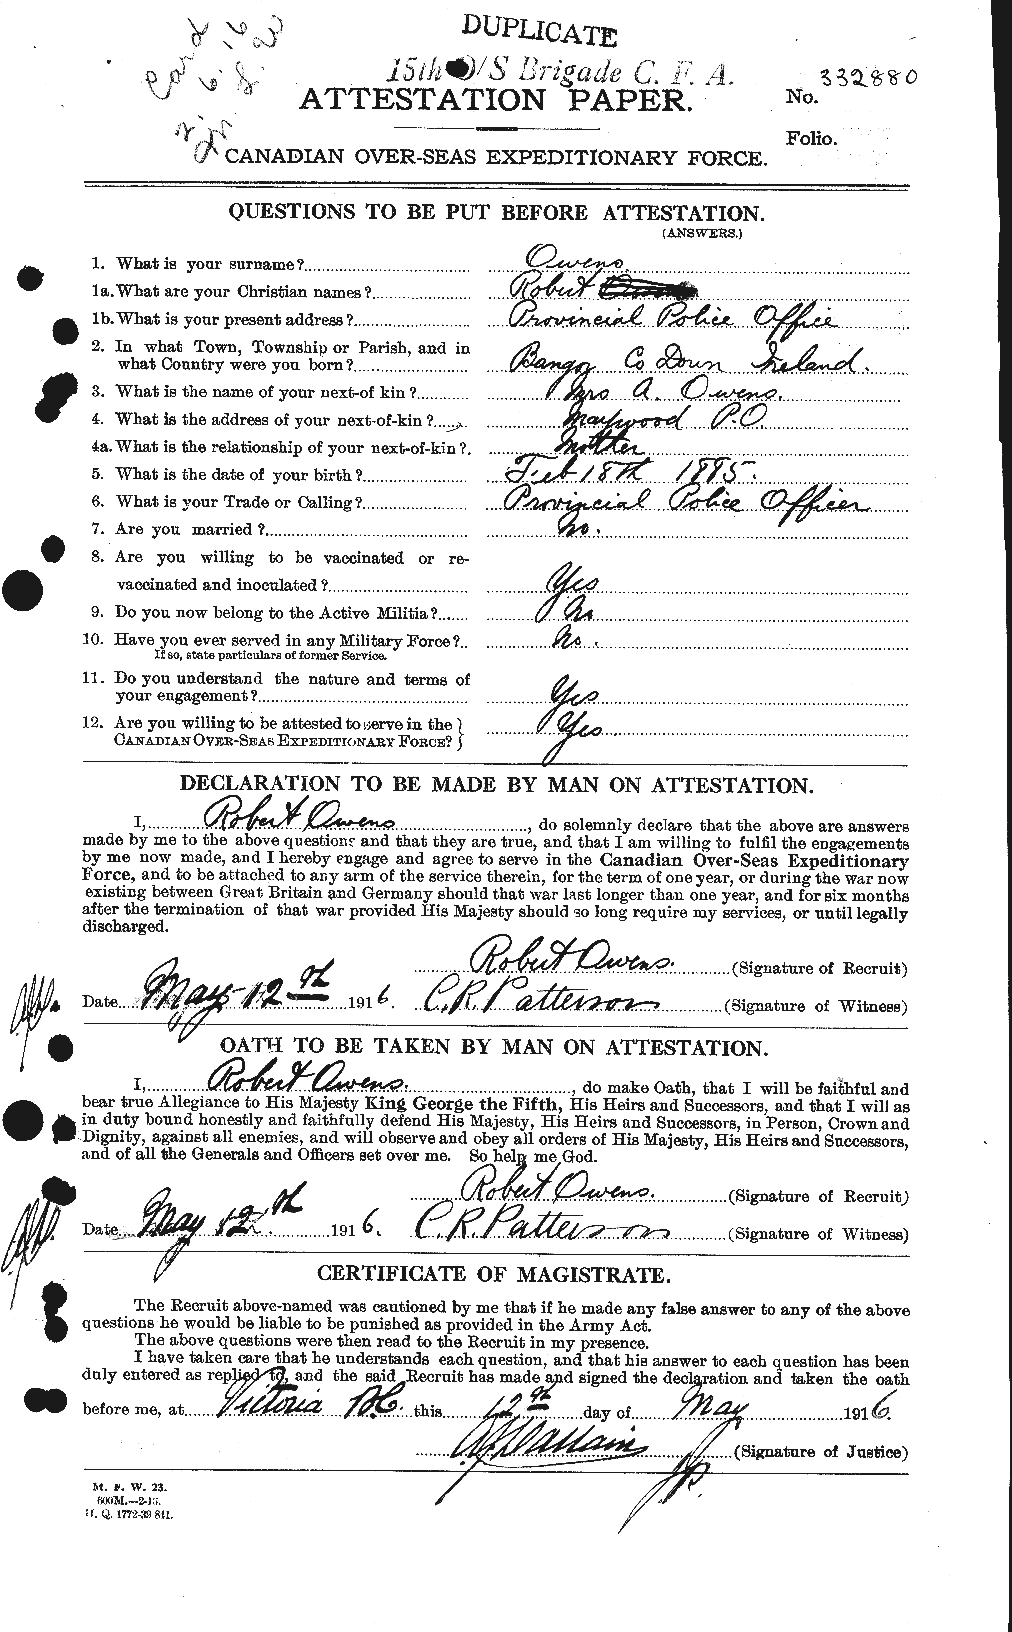 DUPLICATE
15th O/S Brigade C. F. A.
ATTESTATION PAPER.
No. 332880
Folio.
CANADIAN OVER-SEAS EXPEDITIONARY FORCE.
QUESTIONS TO BE PUT BEFORE ATTESTATION.
(ANSWERS.)
1. What is your surname? Owens.
1a. What are your Christian names? Robert
1b. What is your present address? Provincial Police Office
2. In what Town, Township or Parish, and in
what Country were you born? Bangor Co Down Ireland.
3. What is the name of your next-of kin? Mrs A. Owens.
4. What is the address of your next-of-kin? Maywood P.O.
4a. What is the relationship of your next-of-kin? Mother
5. What is the date of your birth? Feb 18th 1885.
6. What is your Trade or Calling? Provincial Police Officer
7. Are you married? No.
8. Are you willing to be vaccinated or re-
vaccinated and inoculated? Yes
9. Do you now belong to the Active Militia? No
10. Have you ever served in any Military Force? No.
If so, state particulars of former Service.
11. Do you understand the nature and terms of
your engagement? Yes
12. Are you willing to be attested to serve in the }
CANADIAN OVER-SEAS EXPEDITIONARY FORCE? } Yes
DECLARATION TO BE MADE BY MAN ON ATTESTATION.
I, Robert Owens, do solemnly declare that the above are answers
made by me to the above questions and that they are true, and that I am willing to fulfil the engagements
by me now made, and I hereby engage and agree to serve in the Canadian Over-Seas Expeditionary
Force, and to be attached to any arm of the service therein, for the term of one year, or during the war now
existing between Great Britain and Germany should that war last longer than one year, and for six months
after the termination of that war provided His Majesty should so long require my services, or until legally
discharged.
Robert Owens. (Signature of Recruit)
Date May 12th 1916. C.R. Patterson (Signature of Witness)
OATH TO BE TAKEN BY MAN ON ATTESTATION.
I, Robert Owens., do make Oath, that I will be faithful and
bear true Allegiance to His Majesty King George the Fifth, His Heirs and Successors, and that I will as
in duty bound honestly and faithfully defend His Majesty, His Heirs and Successors, in Person, Crown and
Dignity, against all enemies, and will observe and obey all orders of His Majesty, His Heirs and Successors,
and of all the Generals and Officers set over me. So help me God.
Robert Owens. (Signature of Recruit)
Date May 12th. 1916. C.R. Patterson (Signature of Witness)
CERTIFICATE OF MAGISTRATE.
The Recruit above-named was cautioned by me that if he made any false answer to any of the above
questions he would be liable to be punished as provided in the Army Act.
The above questions were then read to the Recruit in my presence.
I have taken care that he understands each question, and that his answer to each question has been
duly entered as replied to, and the said Recruit has made and signed the declaration and taken the oath
before me, at Victoria B.C. this 12th day of May 1916.
J.P. (Signature of Justice)
M. F. W. 23.
600M.—2-16.
H. Q. 1772-39 841.